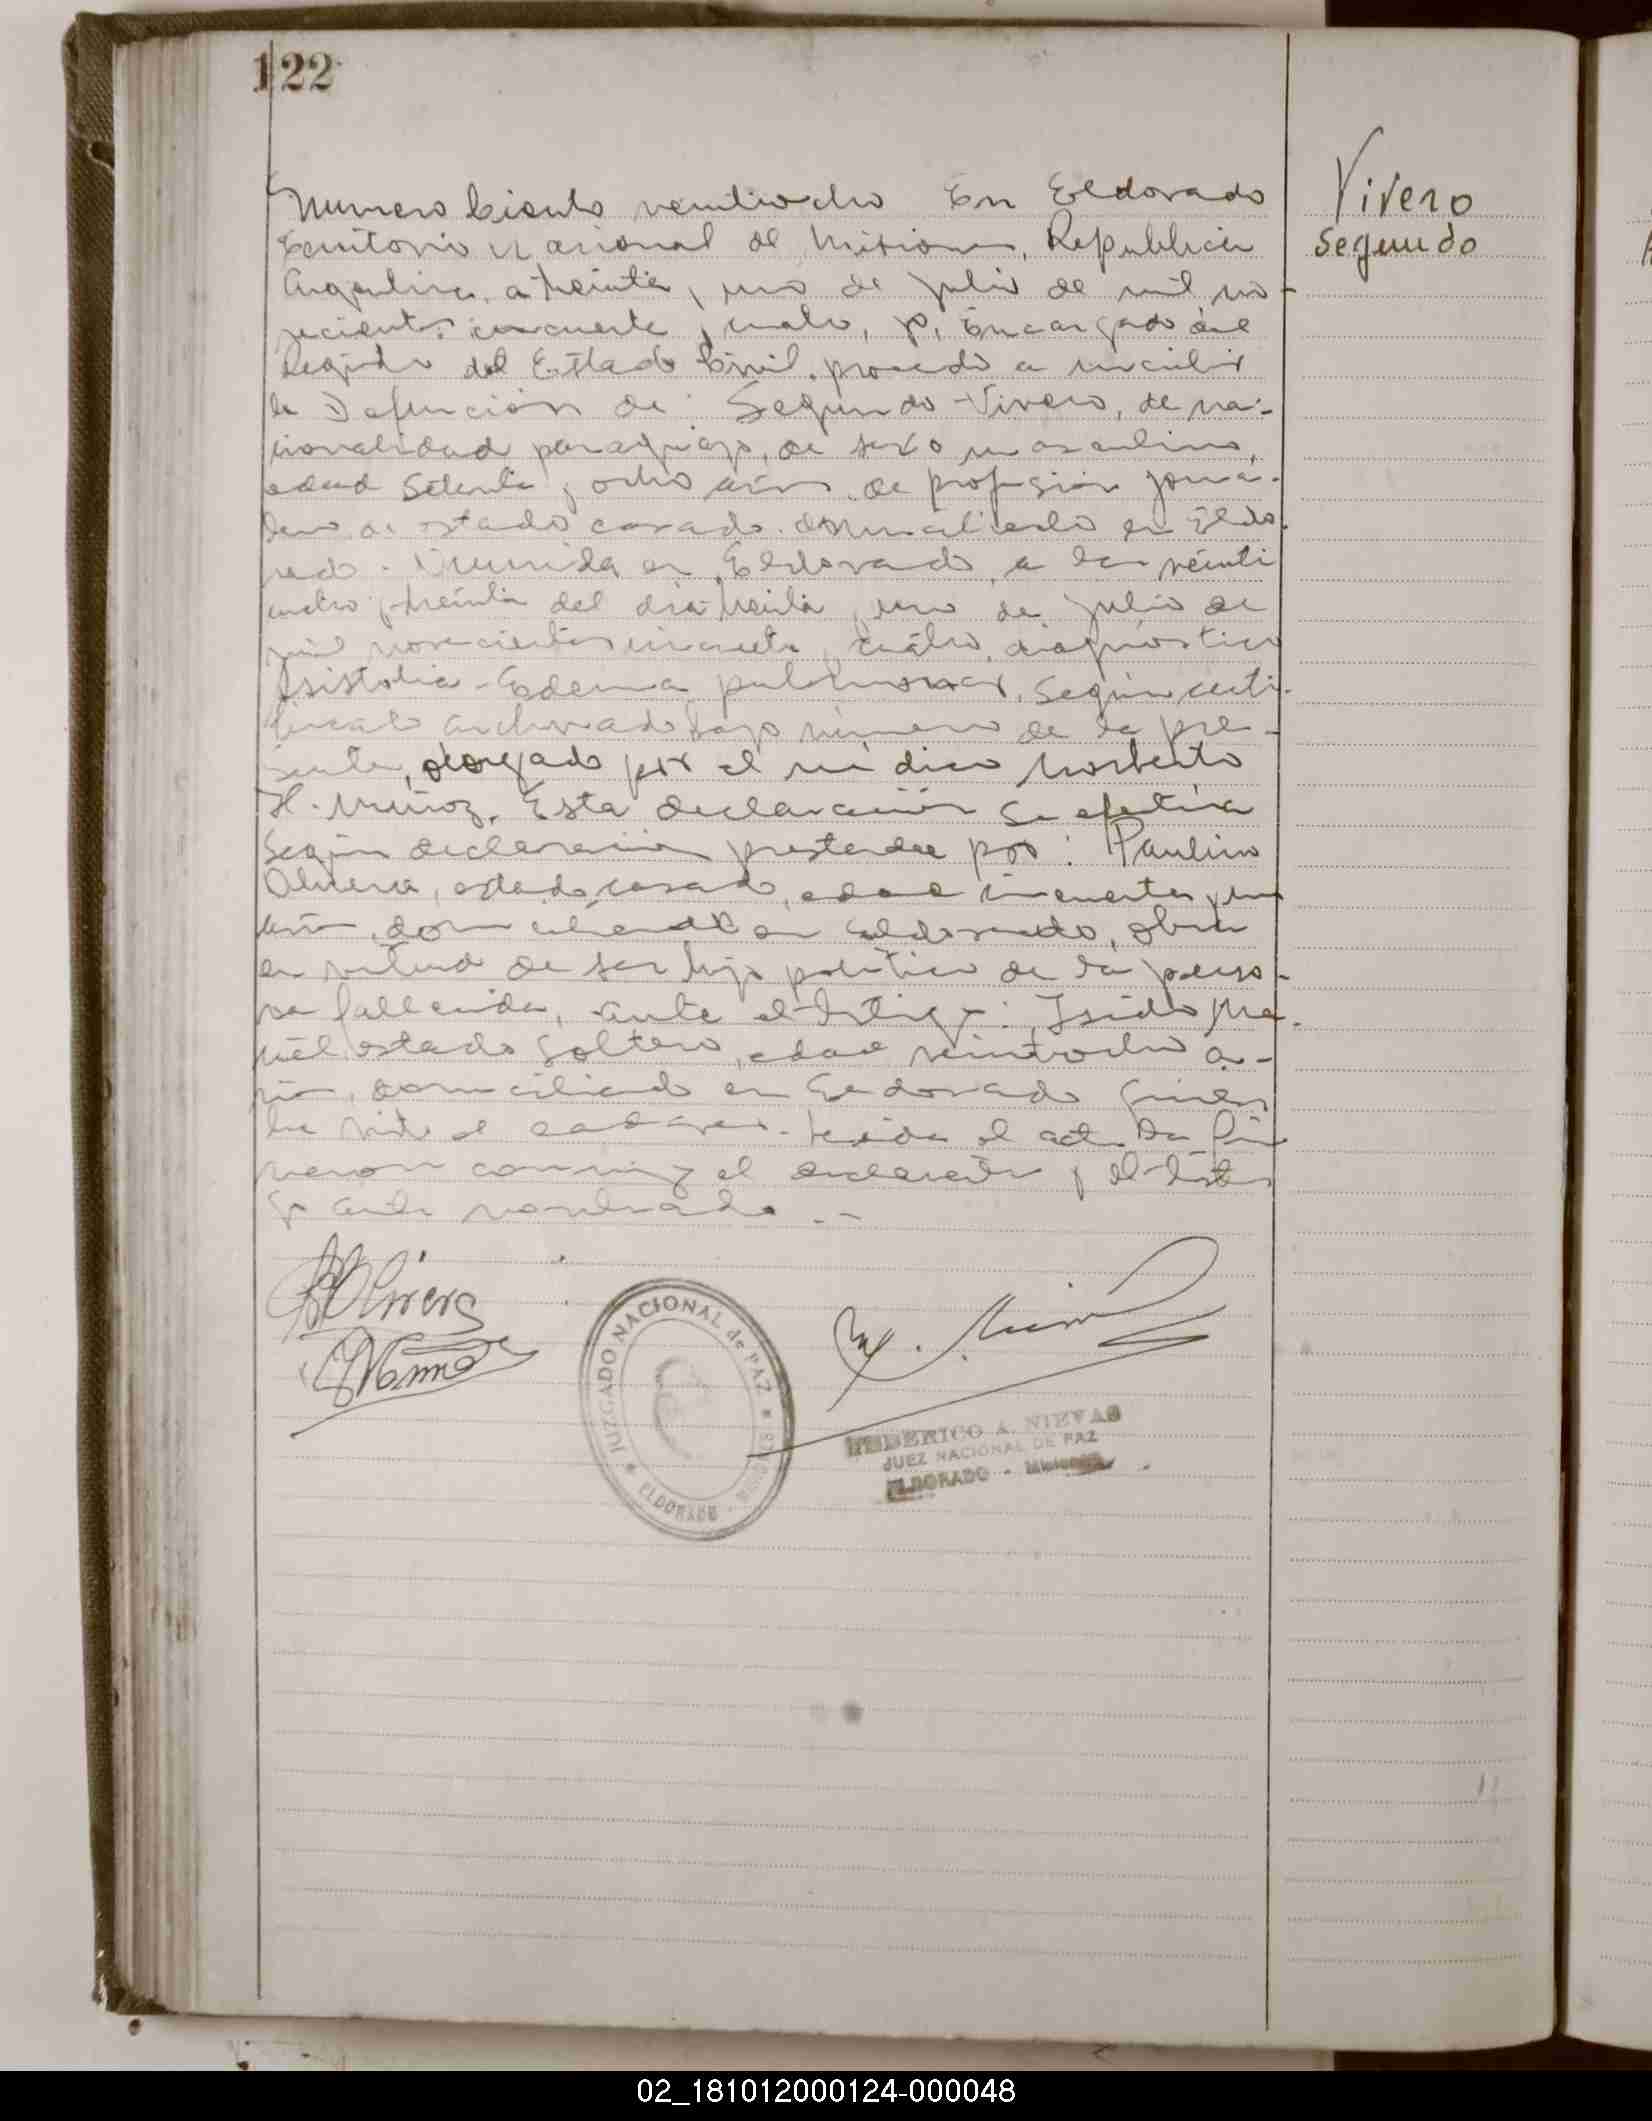 122
Vivero
Segundo
Numero Ciento veintiocho En Eldorado
Territorio Nacional de Misiones, Republica
Argentina, a treinta y uno de julio de mil no-
vecientos cincuenta y cuatro, yo, Encargado del
Registro del Estado Civil, procedo a inscribir
la Defunción de: Segundo Vivero, de na-
cionalidad paraguayo, de sexo masculino,
edad Setenta y ocho años, de profesión jorna-
lero de estado casado, domiciliado en Eldo-
rado. Ocurrida en Eldorado, a las veinti
cuatro y treinta del día treinta y uno de julio de
mil novecientos cincuenta y cuatro, diagnóstico
Asistolia - Edema pulmonar, Según certi-
ficado archivado bajo número de la pre-
sente, otorgado por el médico Norberto
H. Muñoz. Esta declaración se efectúa
Según declaración prestada por: Paulino
Olivera, estado casado, edad cincuenta y un
años, domiciliado en Eldorado, obra
en virtud de ser hijo político de la perso-
na fallecida, ante el testigo: Isidro
estado Soltero, edad veintiocho a-
ños, domiciliado en Eldorado quien
ha visto el cadáver. Leida el acta la fir
maron conmigo el declarante y el testi
go antes nombrado. -
Olivera
JUZGADO NACIONAL de PAZ
ELDORADO - MISIONES
FEDERICO A. NIEVAS
JUEZ NACIONAL DE PAZ
ELDORADO - Misiones
02_181012000124-000048